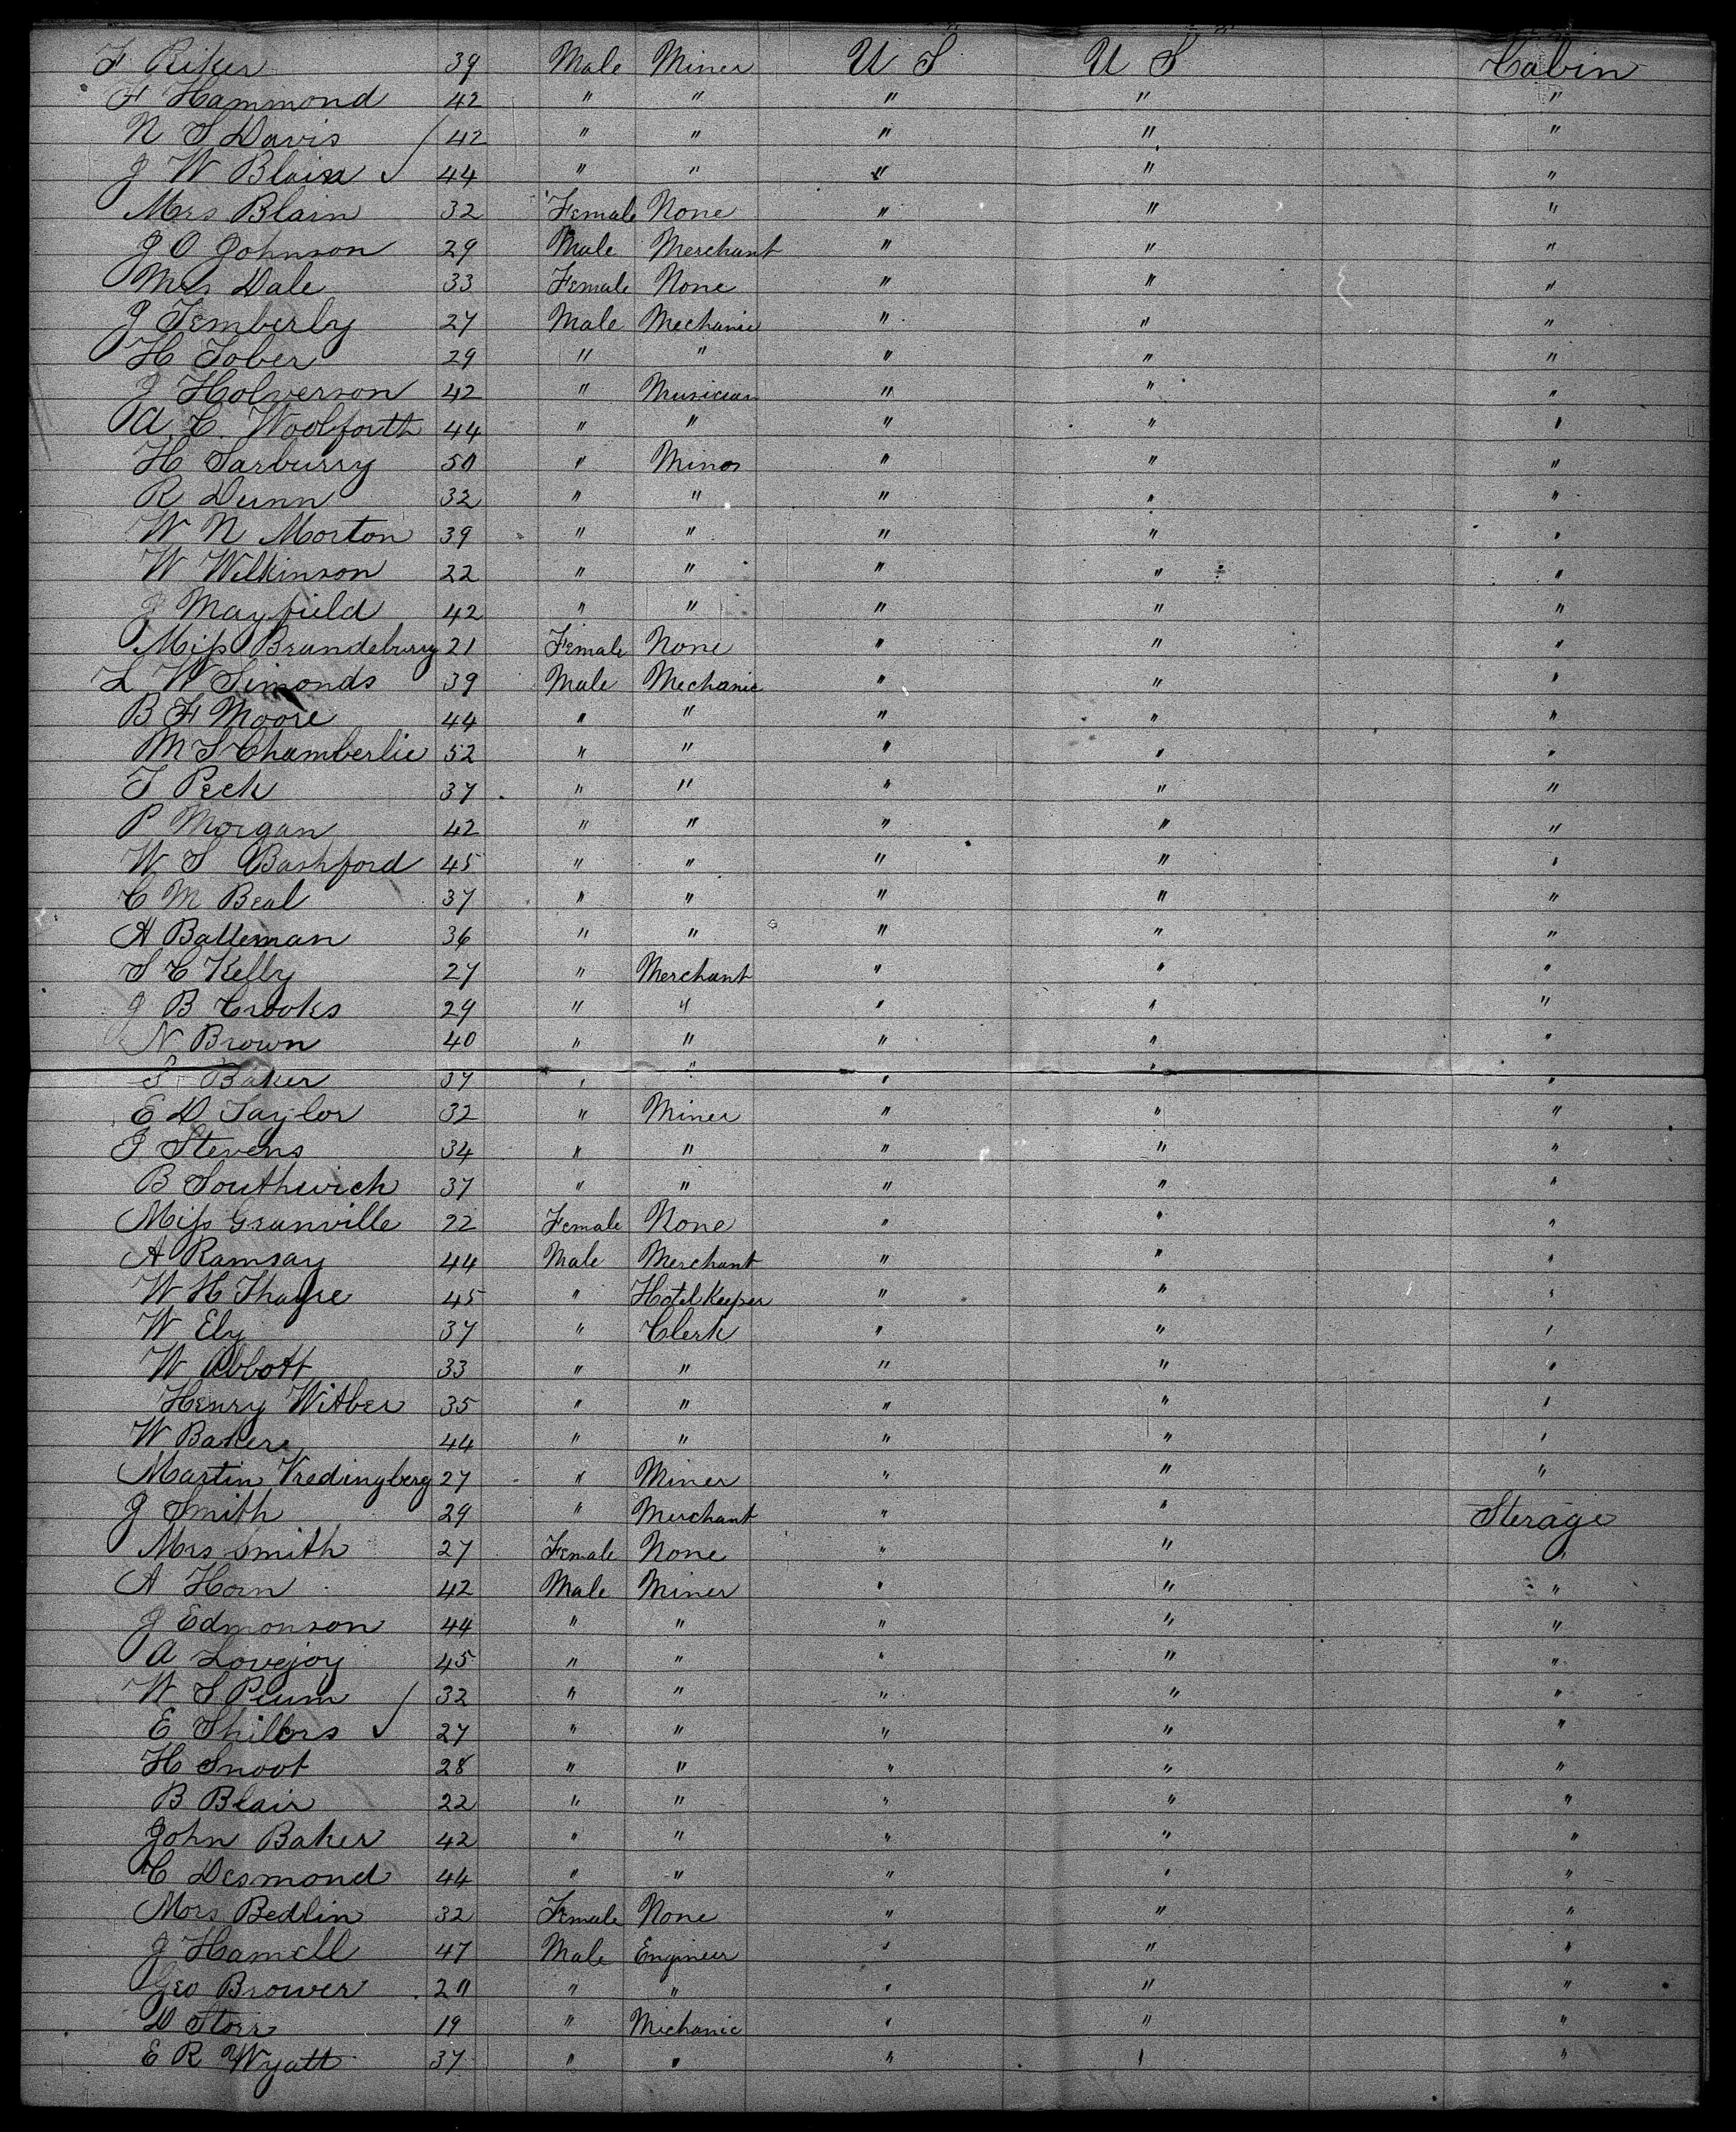 F Riker 39 Male Miner U S U S Cabin
F Hammond 42 " " " " "
N S Davis 42 " " " " "
J W Blain 44 " " " " "
Mrs Blain 32 Female None " " "
J O Johnson 29 Male Merchant " " "
Mrs Dale 33 Female None " " "
J Temberly 27 Male Mechanic " " "
H Tober 29 " " " " "
J Holverson 42 " Musician " " "
A C. Woolforth 44 " " " " "
H Sarburry 50 " Miner " " "
R Dunn 32 " " " " "
W N Morton 39 " " " " "
W Wilkinson 22 " " " " "
J Mayfield 42 " " " " "
Miss Brandeburry 21 Female None " " "
L W Simonds 39 Male Mechanic " " "
B F Moore 44 " " " " "
M S Chamberlie 52 " " " " "
T Peck 37 " " " " "
P Morgan 42 " " " " "
W S Bashford 45 " " " " "
C M Beal 37 " " " " "
A Balleman 36 " " " " "
S C Kelly 27 " Merchant " " "
J B Crooks 29 " " " " "
N Brown 40 " " " " "
S Baker 37 " " " " "
E D Taylor 32 " Miner " " "
J Stevens 34 " " " " "
B Southwick 37 " " " " "
Miss Granville 22 Female None " " "
A Ramsay 44 Male Merchant " " "
W H Thayre 45 " Hotel Keeper " " "
W Ely 37 " Clerk " " "
W Abbott 33 " " " " "
Henry Witber 35 " " " " "
W Baker 44 " " " " "
Martin Vredingberg 27 " Miner " " "
J Smith 29 " Merchant " " Sterage
Mrs Smith 27 Female None " " "
A Horn 42 Male Miner " " "
J Edmonson 44 " " " " "
A Lovejoy 45 " " " " "
W S Plum 32 " " " " "
E Shillors 27 " " " " "
H Snoot 28 " " " " "
B Blair 22 " " " " "
John Baker 42 " " " " "
C Desmond 44 " " " " "
Mrs Bedlin 32 Female None " " "
J Hamell 47 Male Engineer " " "
Geo Brower 20 " " " " "
D Storr 19 " Michanic " " "
E R Wyatt 37 " " " " "